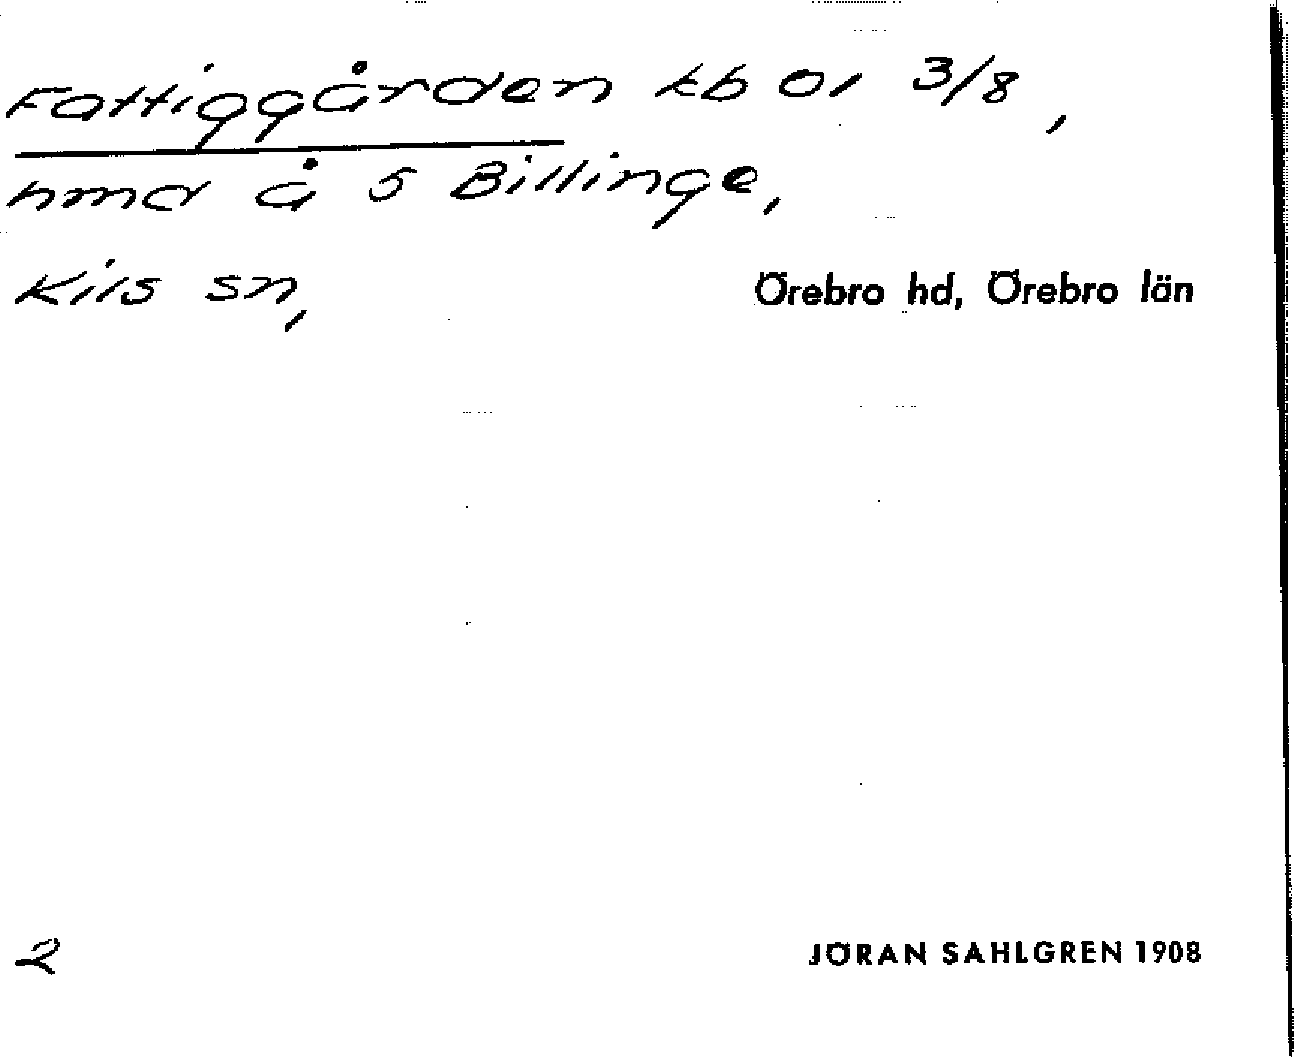 Fattiggården kb or 3/8,
hmd å S Billinge,
Kils sn, Örebro hd, Örebro län
2 JÖRAN SAHLGREN 1908